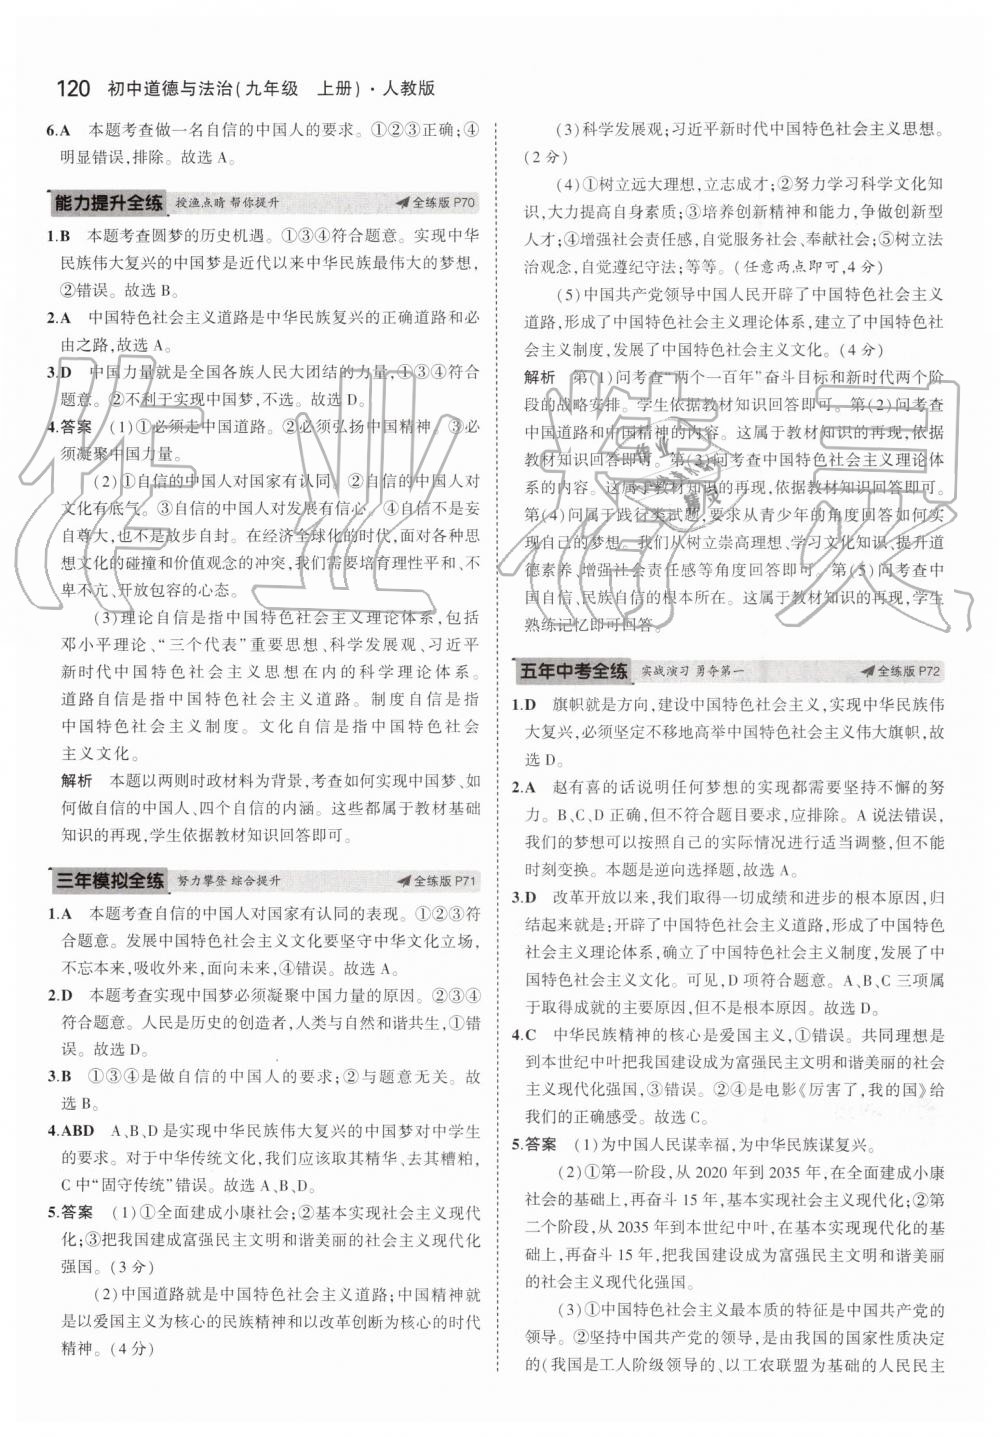 120 初中道德与法治(九年级 上册)·人教版
6.A 本题考查做一名自信的中国人的要求。①②③正确;④
明显错误,排除。故选 A。
能力提升全练 授渔点睛 帮你提升 全练版 P70
1.B 本题考查圆梦的历史机遇。①③④符合题意。实现中华
民族伟大复兴的中国梦是近代以来中华民族最伟大的梦想,
②错误。故选 B。
2.A 中国特色社会主义道路是中华民族复兴的正确道路和必
由之路,故选 A。
3.D 中国力量就是全国各族人民大团结的力量,①③④符合
题意。②不利于实现中国梦,不选。故选 D。
4.答案 (1)①必须走中国道路。②必须弘扬中国精神。③必
须凝聚中国力量。
(2)①自信的中国人对国家有认同。②自信的中国人对
文化有底气。③自信的中国人对发展有信心。④自信不是妄
自尊大,也不是故步自封。在经济全球化的时代,面对各种思
想文化的碰撞和价值观念的冲突,我们需要培育理性平和、不
卑不亢、开放包容的心态。
(3)理论自信是指中国特色社会主义理论体系,包括
邓小平理论、“三个代表”重要思想、科学发展观、习近平
新时代中国特色社会主义思想在内的科学理论体系。
道路自信是指中国特色社会主义道路。制度自信是指
中国特色社会主义制度。文化自信是指中国特色社会
主义文化。
解析 本题以两则时政材料为背景,考查如何实现中国梦、如
何做自信的中国人、四个自信的内涵。这些都属于教材基础
知识的再现,学生依据教材知识回答即可。
三年模拟全练 努力攀登 综合提升 全练版 P71
1.A 本题考查自信的中国人对国家有认同的表现。①②③符
合题意。发展中国特色社会主义文化要坚守中华文化立场,
不忘本来,吸收外来,面向未来,④错误。故选 A。
2.D 本题考查实现中国梦必须凝聚中国力量的原因。②③④
符合题意。人民是历史的创造者,人类与自然和谐共生,①错
误。故选 D。
3.B ①③④是做自信的中国人的要求;②与题意无关。故
选 B。
4.ABD A、B、D 是实现中华民族伟大复兴的中国梦对中学生
的要求。对于中华传统文化,我们应该取其精华、去其糟粕,
C 中“固守传统”错误。故选 A、B、D。
5.答案 (1)①全面建成小康社会;②基本实现社会主义现代
化;③把我国建成富强民主文明和谐美丽的社会主义现代化
强国。(3 分)
(2)中国道路就是中国特色社会主义道路;中国精神就
是以爱国主义为核心的民族精神和以改革创新为核心的时代
精神。(4 分)
(3)科学发展观;习近平新时代中国特色社会主义思想。
(2 分)
(4)①树立远大理想,立志成才;②努力学习科学文化知
识,大力提高自身素质;③培养创新精神和能力,争做创新型
人才;④增强社会责任感,自觉服务社会、奉献社会;⑤树立法
治观念,自觉遵纪守法;等等。(任意两点即可,4 分)
(5)中国共产党领导中国人民开辟了中国特色社会主义
道路,形成了中国特色社会主义理论体系,建立了中国特色社
会主义制度,发展了中国特色社会主义文化。(4 分)
解析 第(1)问考查“两个一百年”奋斗目标和新时代两个阶
段的战略安排。学生依据教材知识回答即可。第(2)问考查
中国道路和中国精神的内容。这属于教材知识的再现,依据
教材知识回答即可。第(3)问考查中国特色社会主义理论体
系的内容。这属于教材知识的再现,依据教材知识回答即可。
第(4)问属于践行类试题,要求从青少年的角度回答如何实
现自己的梦想。我们从树立崇高理想、学习文化知识、提升道
德素养、增强社会责任感等角度回答即可。第(5)问考查中
国自信、民族自信的根本所在。这属于教材知识的再现,学生
熟练记忆即可回答。
五年中考全练 实战演习 勇夺第一 全练版 P72
1.D 旗帜就是方向,建设中国特色社会主义,实现中华民族伟
大复兴,必须坚定不移地高举中国特色社会主义伟大旗帜,故
选 D。
2.A 赵有喜的话说明任何梦想的实现都需要坚持不懈的努
力。B、C、D 正确,但不符合题目要求,应排除。A 说法错误,
我们的梦想可以按照自己的实际情况进行适当调整,但不能
时刻变换。本题是逆向选择题,故选 A。
3.D 改革开放以来,我们取得一切成绩和进步的根本原因,归
结起来就是:开辟了中国特色社会主义道路,形成了中国特色
社会主义理论体系,确立了中国特色社会主义制度,发展了中
国特色社会主义文化。可见,D 项符合题意。A、B、C 三项属
于取得成就的主要原因,但不是根本原因。故选 D。
4.C 中华民族精神的核心是爱国主义,①错误。共同理想是
到本世纪中叶把我国建设成为富强民主文明和谐美丽的社会
主义现代化强国,③错误。②④是电影《厉害了,我的国》给
我们的正确感受。故选 C。
5.答案 (1)为中国人民谋幸福,为中华民族谋复兴。
(2)①第一阶段,从 2020 年到 2035 年,在全面建成小康
社会的基础上,再奋斗 15 年,基本实现社会主义现代化;②第
二个阶段,从 2035 年到本世纪中叶,在基本实现现代化的基
础上,再奋斗 15 年,把我国建设成为富强民主文明和谐美丽
的社会主义现代化强国。
(3)①中国特色社会主义最本质的特征是中国共产党的
领导。②坚持中国共产党的领导,是由我国的国家性质决定
的(我国是工人阶级领导的、以工农联盟为基础的人民民主
作业精灵